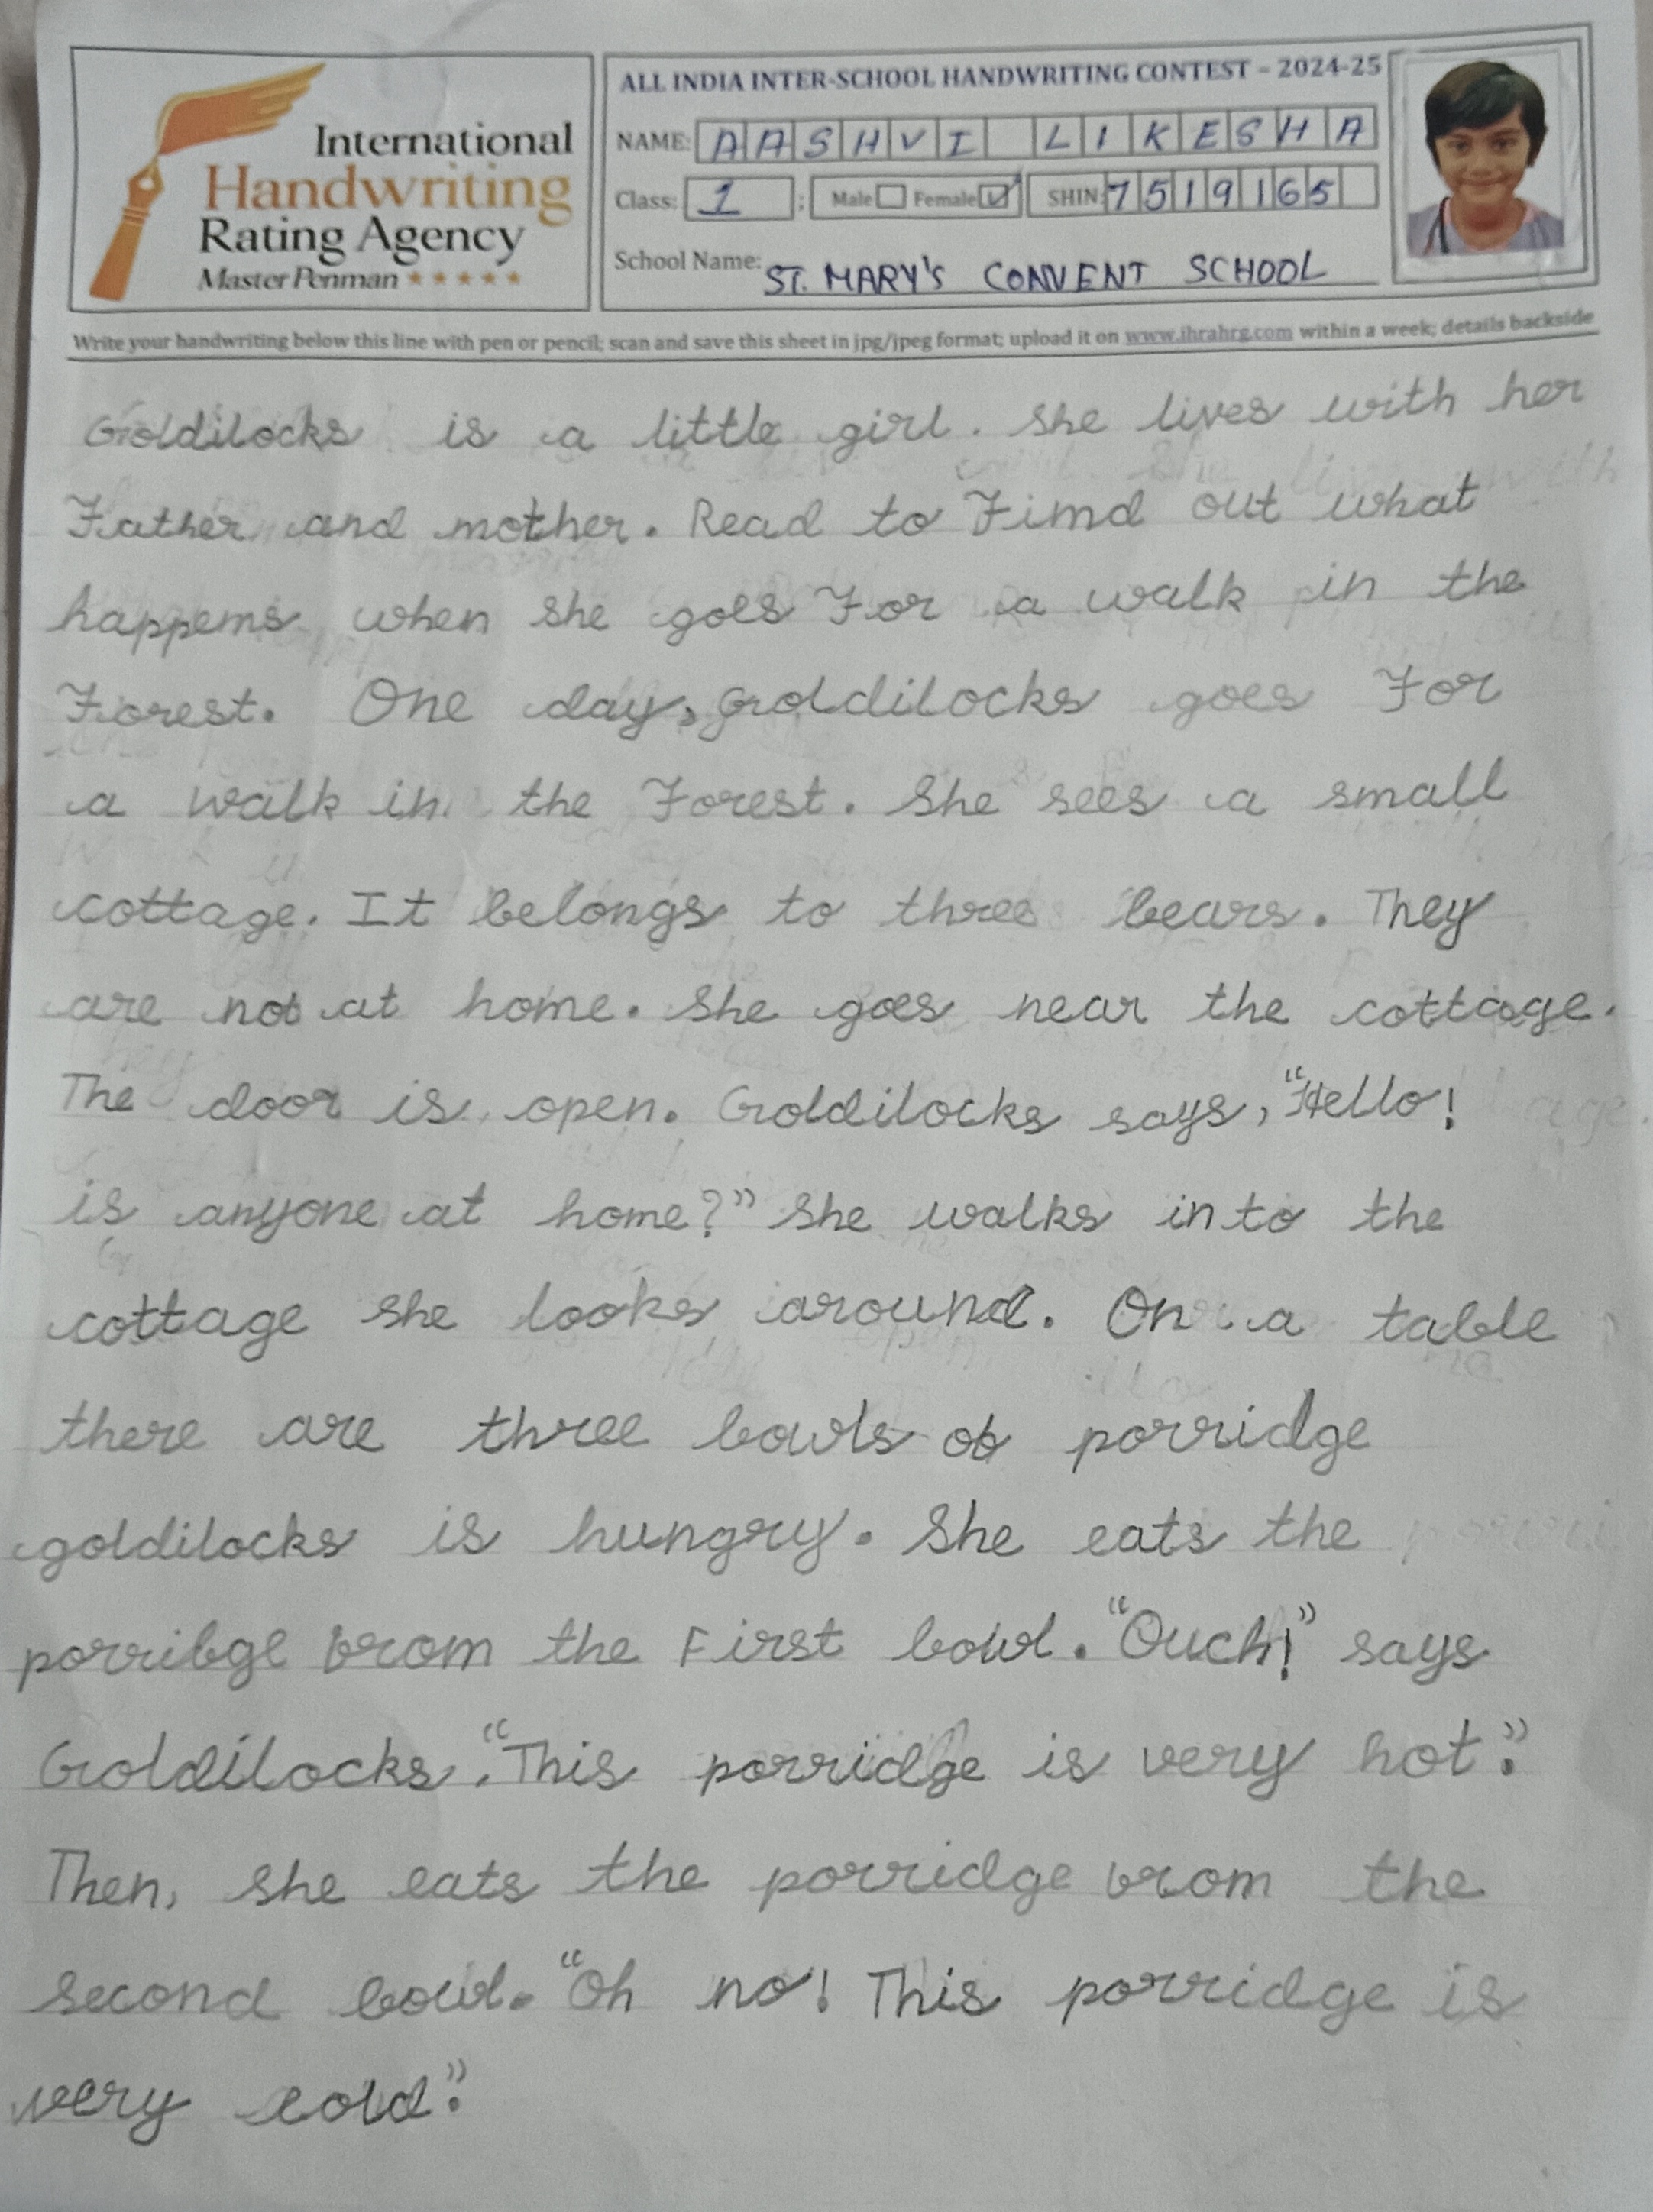 International
Handwriting
Rating Agency
Master Penman ★★★★★
ALL INDIA INTER-SCHOOL HANDWRITING CONTEST – 2024-25
NAME: AASHVI LIKESHA
Class: 1 : Male Female SHIN: 7519165
School Name: ST. MARY'S CONVENT SCHOOL
Write your handwriting below this line with pen or pencil; scan and save this sheet in jpg/jpeg format; upload it on www.ihrahrg.com within a week; details backside
Goldilocks is a little girl. She lives with her
Father and mother. Read to Fimd out what
happems when she goes For a walk in the
Forest. One day, Goldilocks goes For
a walk in the Forest. She sees a small
cottage. It belongs to three bears. They
are not at home. She goes near the cottage.
The door is open. Goldilocks says, "Hello!
is anyone at home?" She walks into the
cottage she looks around. On a table
there are three bowls ob porridge
goldilocks is hungry. She eats the
porribge brom the First bowl. "Ouch!" says
Goldilocks. "This porridge is very hot."
Then, she eats the porridge brom the
second bowl. "Oh no! This porridge is
very cold."